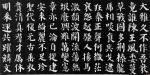 大雅久不作吾衰
竟誰陳王風委蔓
草戰國多荊榛龍
虎相啖食兵戈逮
狂秦正聲何微茫
哀怨起騷人揚馬
激頹波開流蕩無
垠廢興雖萬變憲
章亦已淪自從建
安來綺麗不足珍
聖代復元古垂衣
貴清真群才屬休
明乘運共躍鱗文